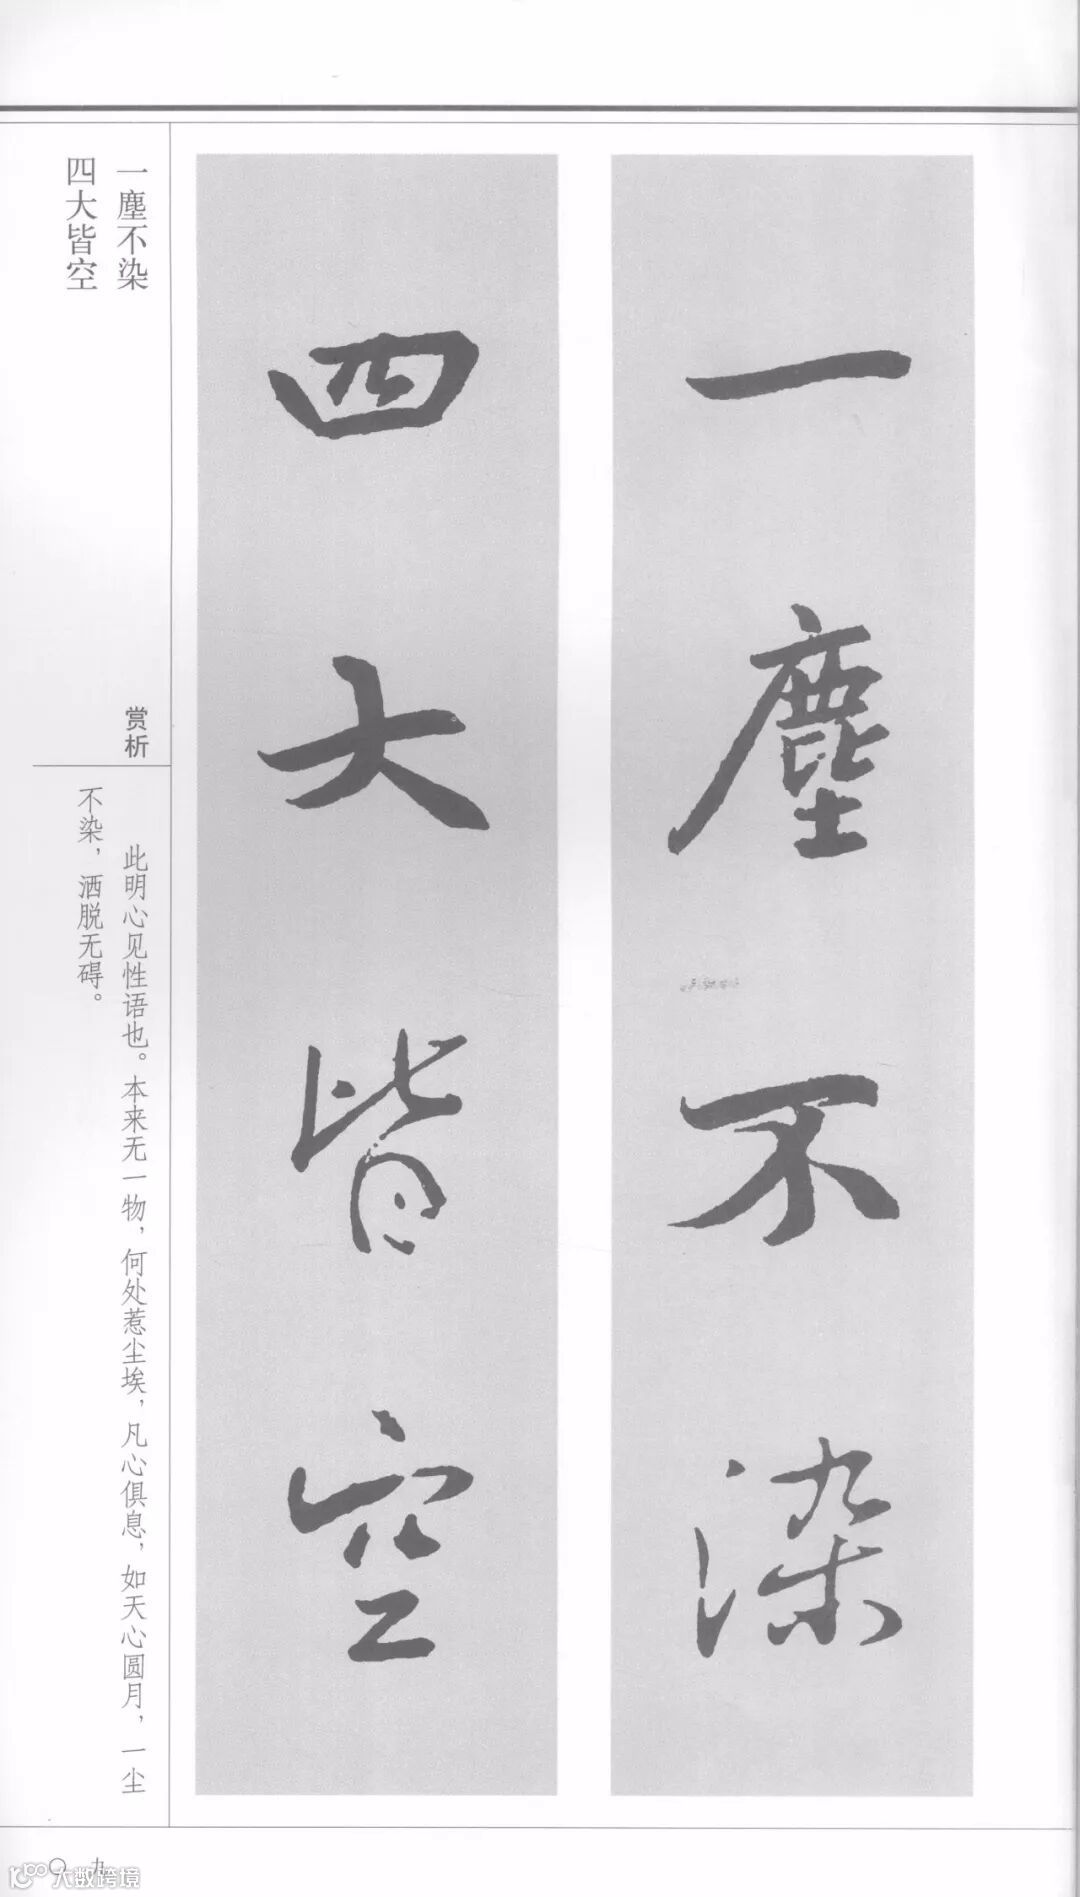 一塵不染
四大皆空
一塵不染
四大皆空
赏析
此明心见性语也。本来无一物，何处惹尘埃，凡心俱息，如天心圆月，一尘
不染，洒脱无碍。
九〇
大数跨境